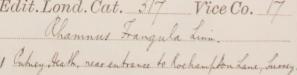 Edit. Lond. Cat. 317 Vice Co. 17
Rhamnus Frangula Linn.
Putney Heath, near entrance to Roehampton Lane, Surrey